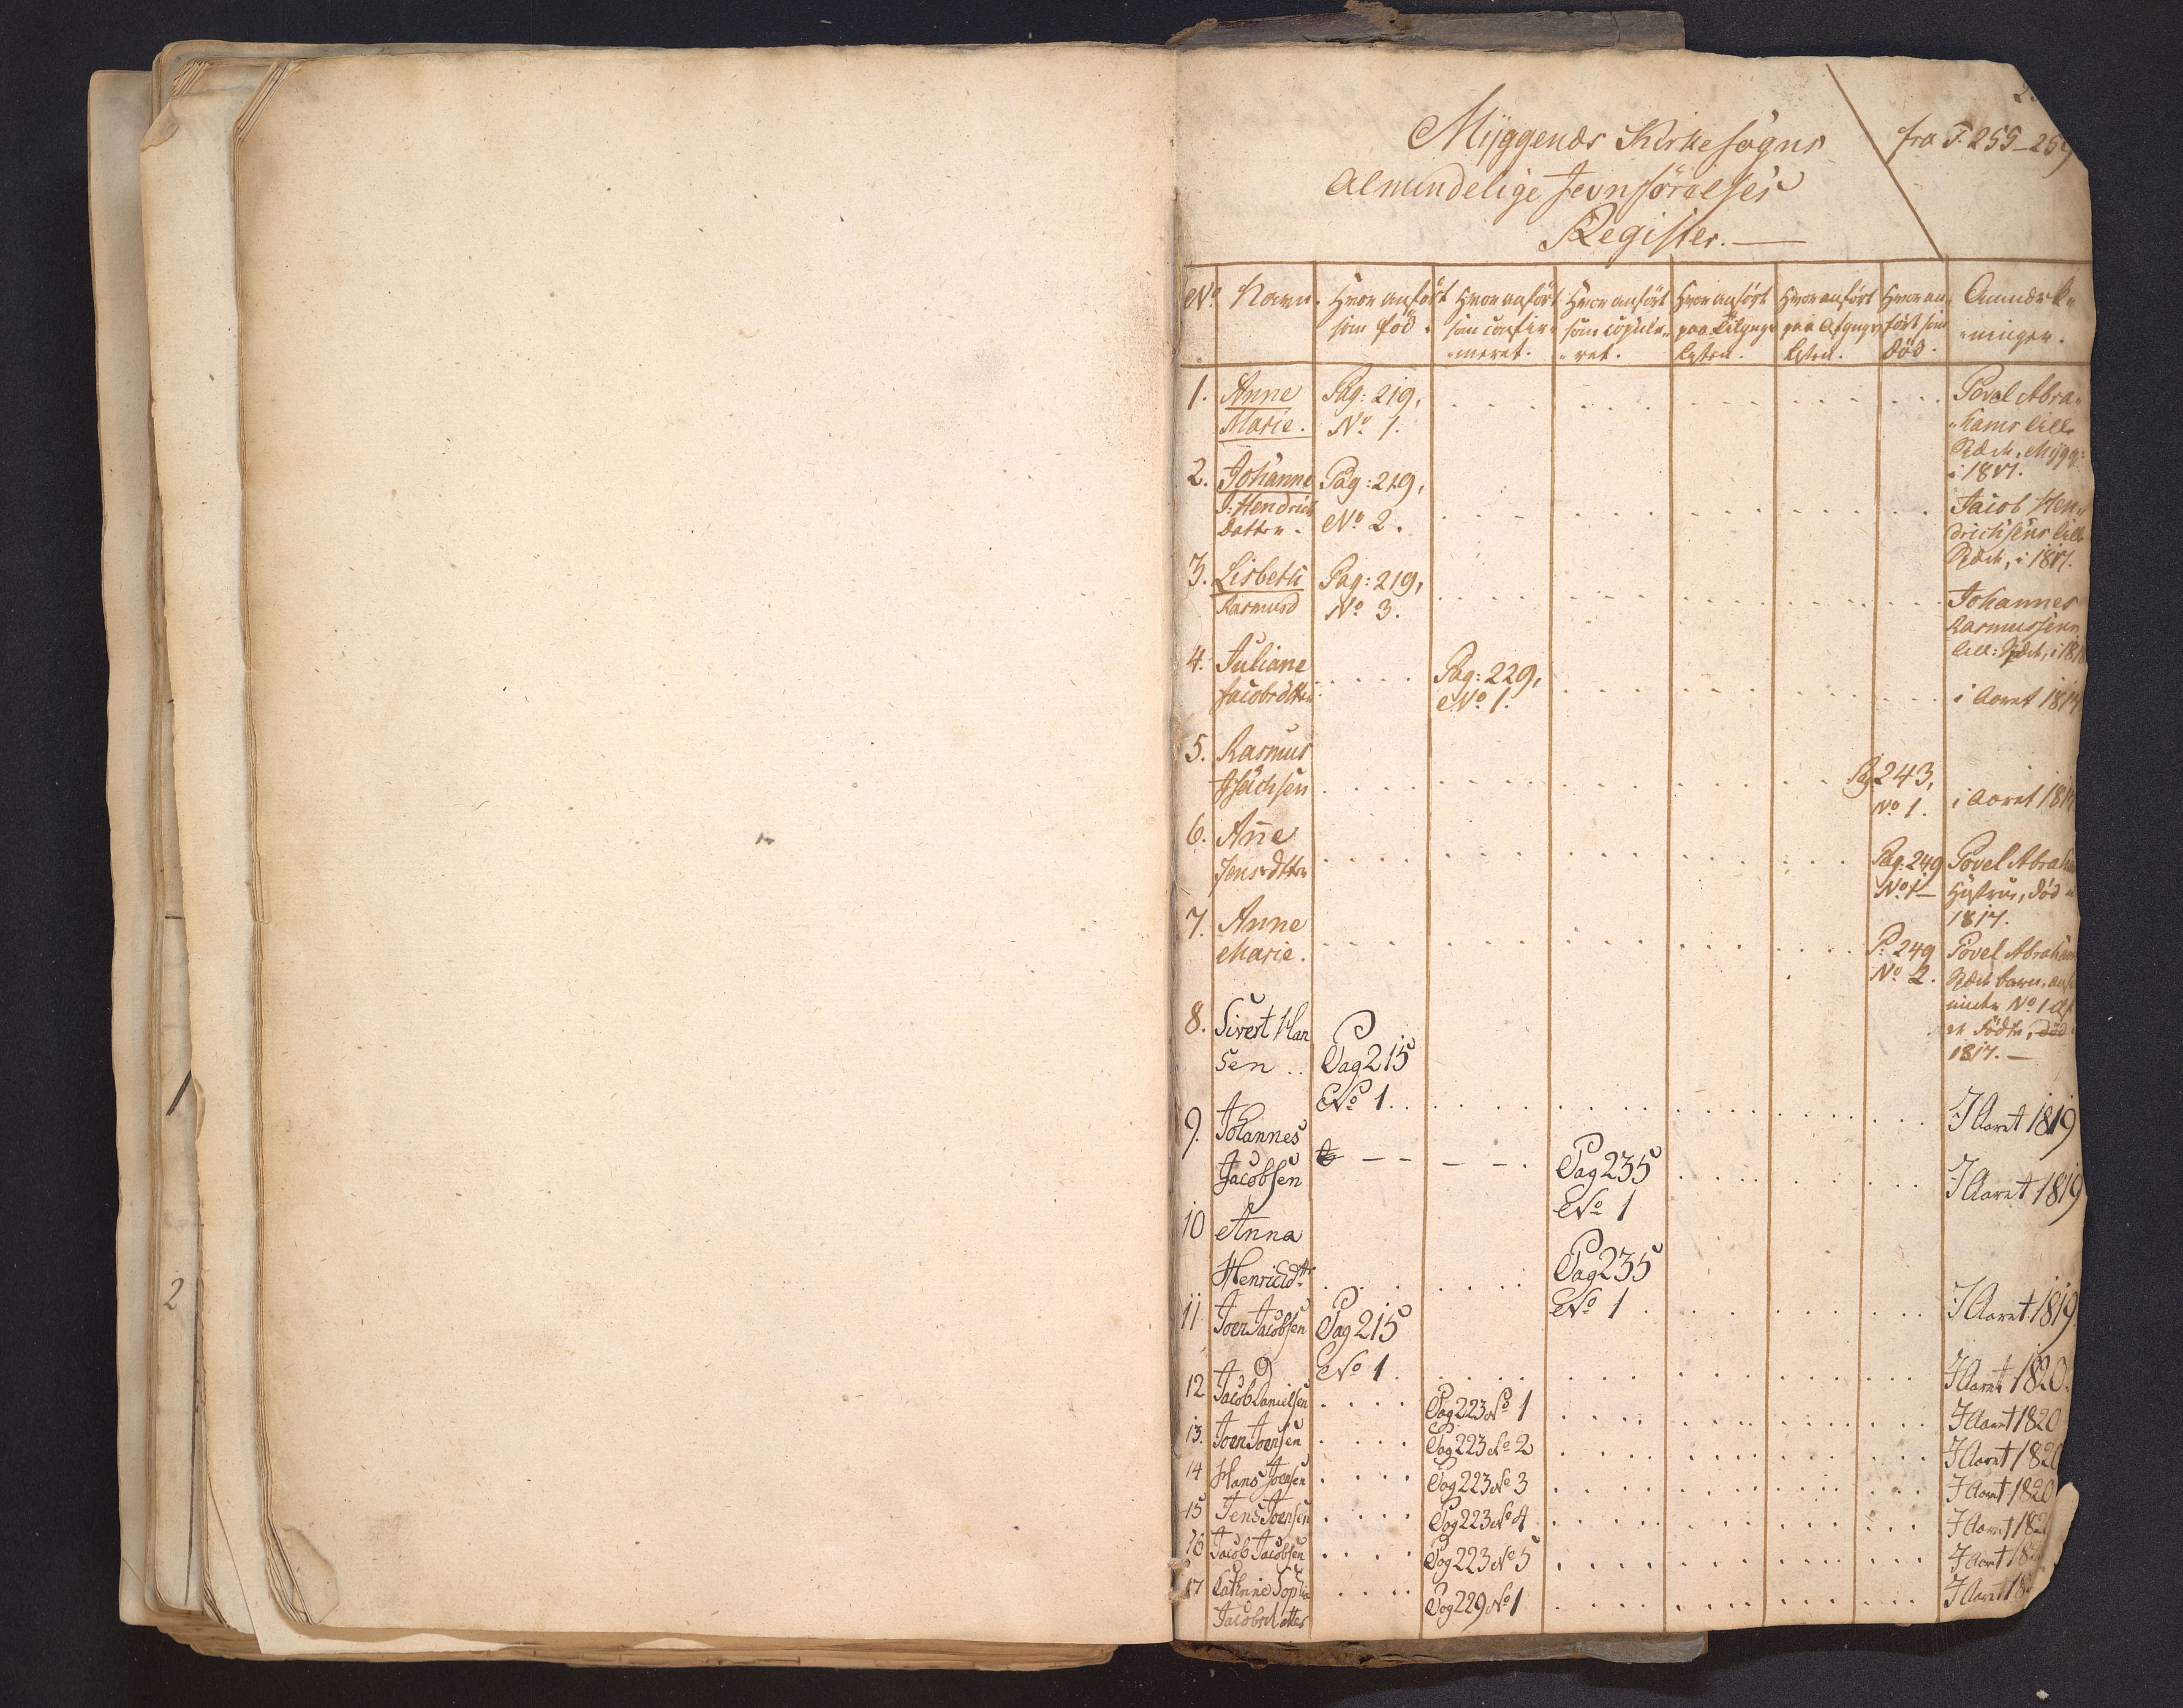 Myggenæs Kirkesogns
fra P. 255-259
Almindelige Jevnförelses
Register.
No Navn. Hvor anfört som fød. Hvor anfört som confir-meret. Hvor anfört som copule-ret. Hvor anfört paa Tilgangs Lysten. Hvor anfört paa Afgangs Lysten. Hvor anfört som död. Anmærk-ninger.
1. Anne Pag: 219, Povel Abra-
Marie. No 1. hams lille
Pige, Mygg:
i 1817.
2. Johanne Pag: 219, Jacob Hen-
J: Hendrich No 2. drichsens lille
Datter. i 1817.
3. Lisbeth Pag: 219, Johannes
Rasmusd No 3. Rasmussens
lill:
4. Juliane Pag: 229,
Jacobsdtter No 1. i Aaret 181
5. Rasmus Pag 243,
No 1. i Aaret 181
6. Añe Pag: 249 Povel Abraham
Jensdtter No 1 Hustrue, död
1817.
7. Anne P: 249 Povel Abraham
Marie. No 2. barn,
under No 1 af
födte, död
1817.
8. Sivert Han
sen .. Pag 215
No 1. I Aaret 1819
9. Johannes
Jacobsen Pag 235 I Aaret 1819
No 1
10 Anna
Henrichdtr Pag 235
No 1 I Aaret 1819
11 Joen Jacobsen Pag 215
No 1 I Aaret 1820.
12 Jacob Danielsen Pag 223 No 1 I Aaret 1820
13. Joen Joensen Pag 223 No 2 I Aaret 1820
14 Hans Joensen Pag 223 No 3 I Aaret 1820
15 Jens Joensen Pag 223 No 4 I Aaret 182
16 Jacob Jacobsen Pag 223 No 5 I Aaret 18
17 Cathrine Sophia Pag 229 No 1 I Aaret 18
Jacobsdotter
1
2